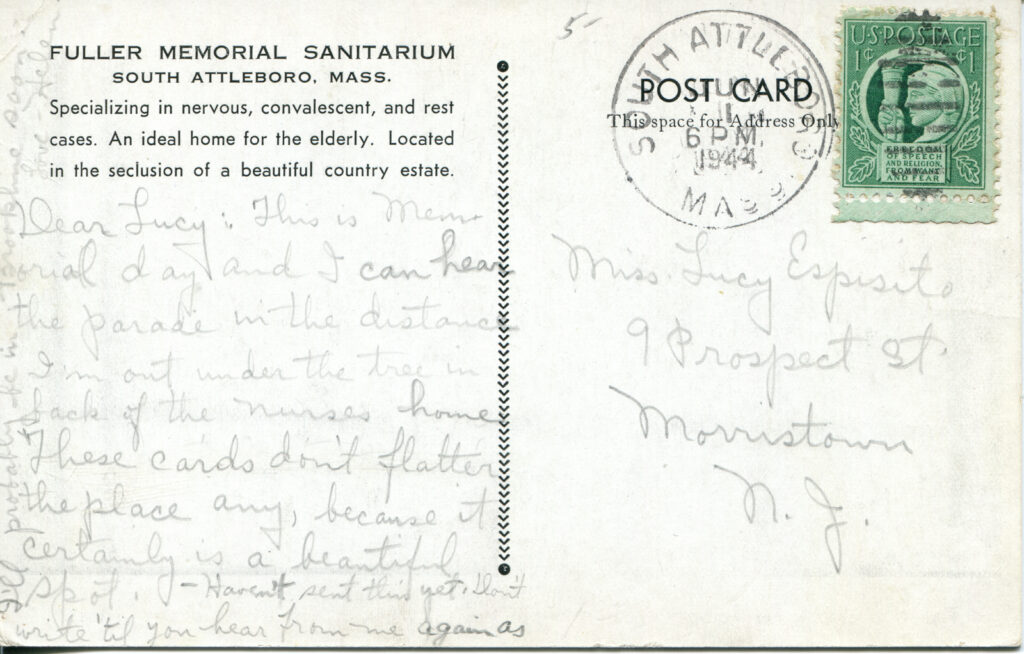 FULLER MEMORIAL SANITARIUM
SOUTH ATTLEBORO, MASS.
Specializing in nervous, convalescent, and rest
cases. An ideal home for the elderly. Located
in the seclusion of a beautiful country estate.
Dear Lucy: This is Mem-
orial day and I can hear
the parade in the distance
I'm out under the tree in
back of the nurses home
These cards don't flatter
the place any, because it
certainly is a beautiful
spot. - Haven't sent this yet. Don't
write 'til you hear from me again as
I'll probably be in Brooklyn soon
Love - Helen
5-
POST CARD
This space for Address Only
SOUTH ATTLEBORO
JUN
1
6 PM
1944
MASS
U.S. POSTAGE
1¢ ¢1
FREEDOM
OF SPEECH
AND RELIGION,
FROM WANT
AND FEAR
Miss. Lucy Espisito
9 Prospect St.
Morristown
N. J.